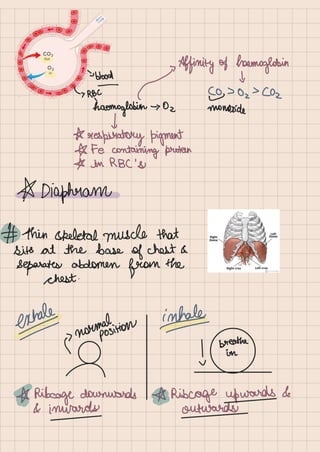 CO₂
Out
O₂
in
→ blood
→ RBC
haemoglobin → O₂
Affinity of haemoglobin
↓
CO, > O₂ > CO₂
monoxide
↓
☆ respiratory pigment
☆ Fe containing protein
☆ In RBC's
☆ Diaphram
# Thin skeletal muscle that
sits at the base of chest &
separates abdomen from the
chest.
Left
Right
Right crus
Left crus
exhale
→ normal
position
☆ Ribcage downwards
& inwards
inhale
breathe
in
☆ Ribcage upwards &
outwards